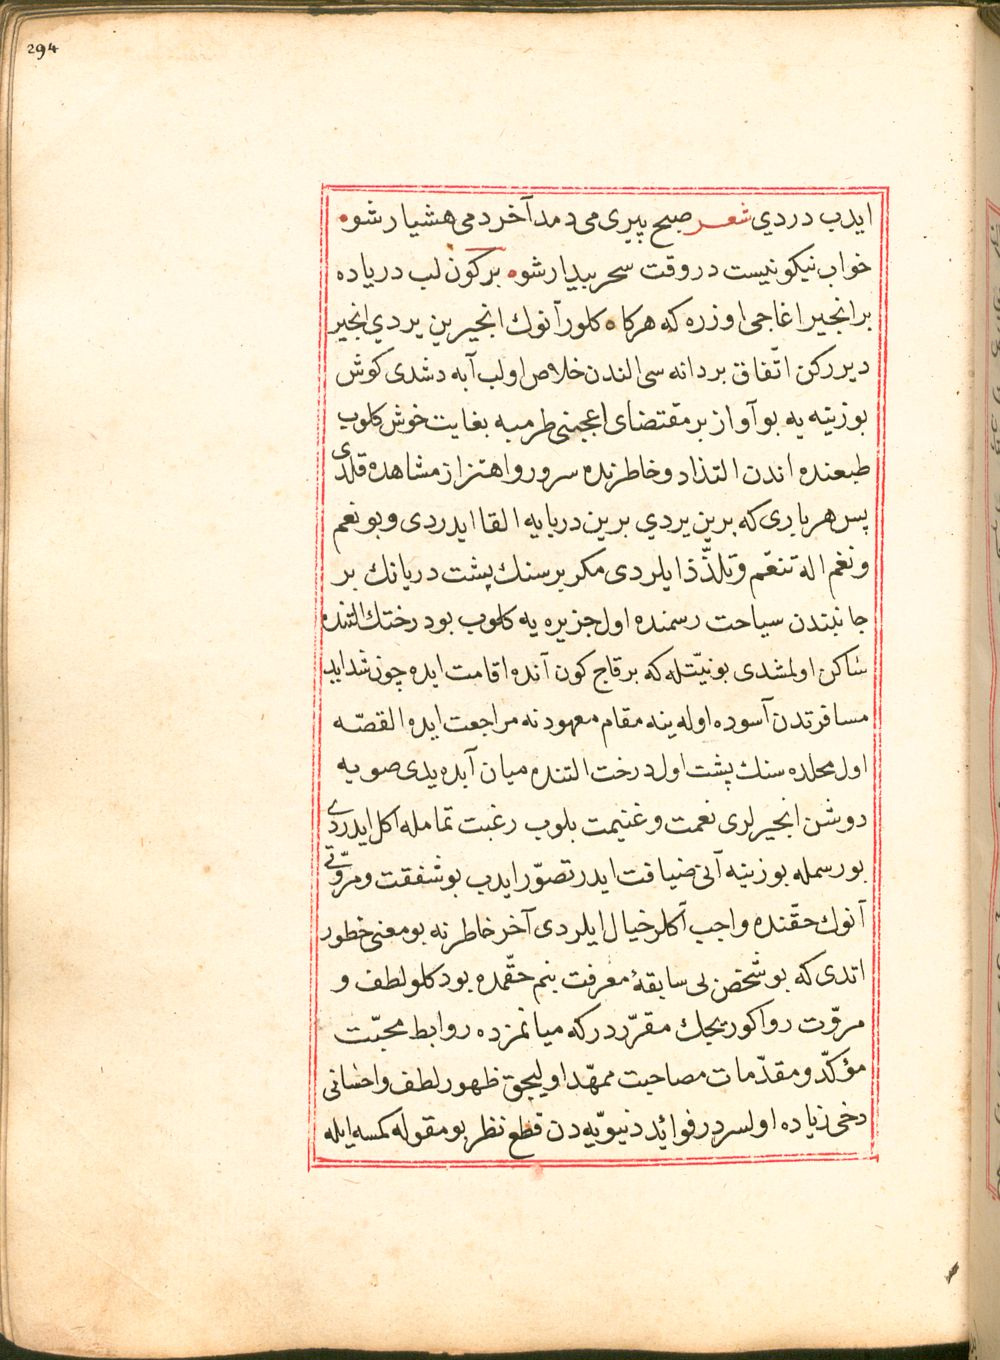 294
ایدب دردي شعر صبح پیری می دمد آخر دمی هشیار شو
خواب نیکو نیست در وقت سحر بیدار شو بر کون لب دریاده
بر انجیر اغاجی اوزره که هرکاه کلور آنوك انجیرین یردي انجیر
دیررکن اتّفاق بر دانه سی الندن خلاص اولب آبه دشدی کوش
بوزینه یه بو آواز بر مقتضای اعجبنی طربیه بغایت خوش کلوب
طبعنده اندن التذاد و خاطرنده سرور و اهتزاز مشاهده قلدی
پس هر باری که برین یردي برین دریایه القا ایدردی و بو نعم
و نغم اله تنعّم و تلذّذ ایلردی مکر بر سنك پشت دریانك بر
جانبندن سیاحت رسمنده اول جزیره یه کلوب بو درختك التنده
ساکن اولمشدی بو نیّتله که بر قاج کون آنده اقامت ایده چون شداید
مسافرتدن آسوده اوله ینه مقام معهودنه مراجعت ایده القصّه
اول محلده سنك پشت اول درخت التنده میان آبده یدی صویه
دوشن انجیرلری نعمت و غنیمت بلوب رغبت تمامله اکل ایدردي
بو رسمله بوزینه آنی ضیافت ایدر تصوّر ایدب بو شفقت و مروّتی
آنوك حقّنده واجب آکلر خیال ایلردی آخر خاطرنه بو معنی خطور
اتدی که بو شخص بی سابقهٔ معرفت بنم حقّمده بو دکلو لطف و
مروّت روا کوریجك مقرّردر که میانمزده روابط محبّت
مؤکّد و مقدّمات مصاحبت ممهّد اولیجق ظهور لطف و احسانی
دخی زیاده اولسردر فوائد دنیویّه دن قطع نظر بو مقوله کمسه ایله